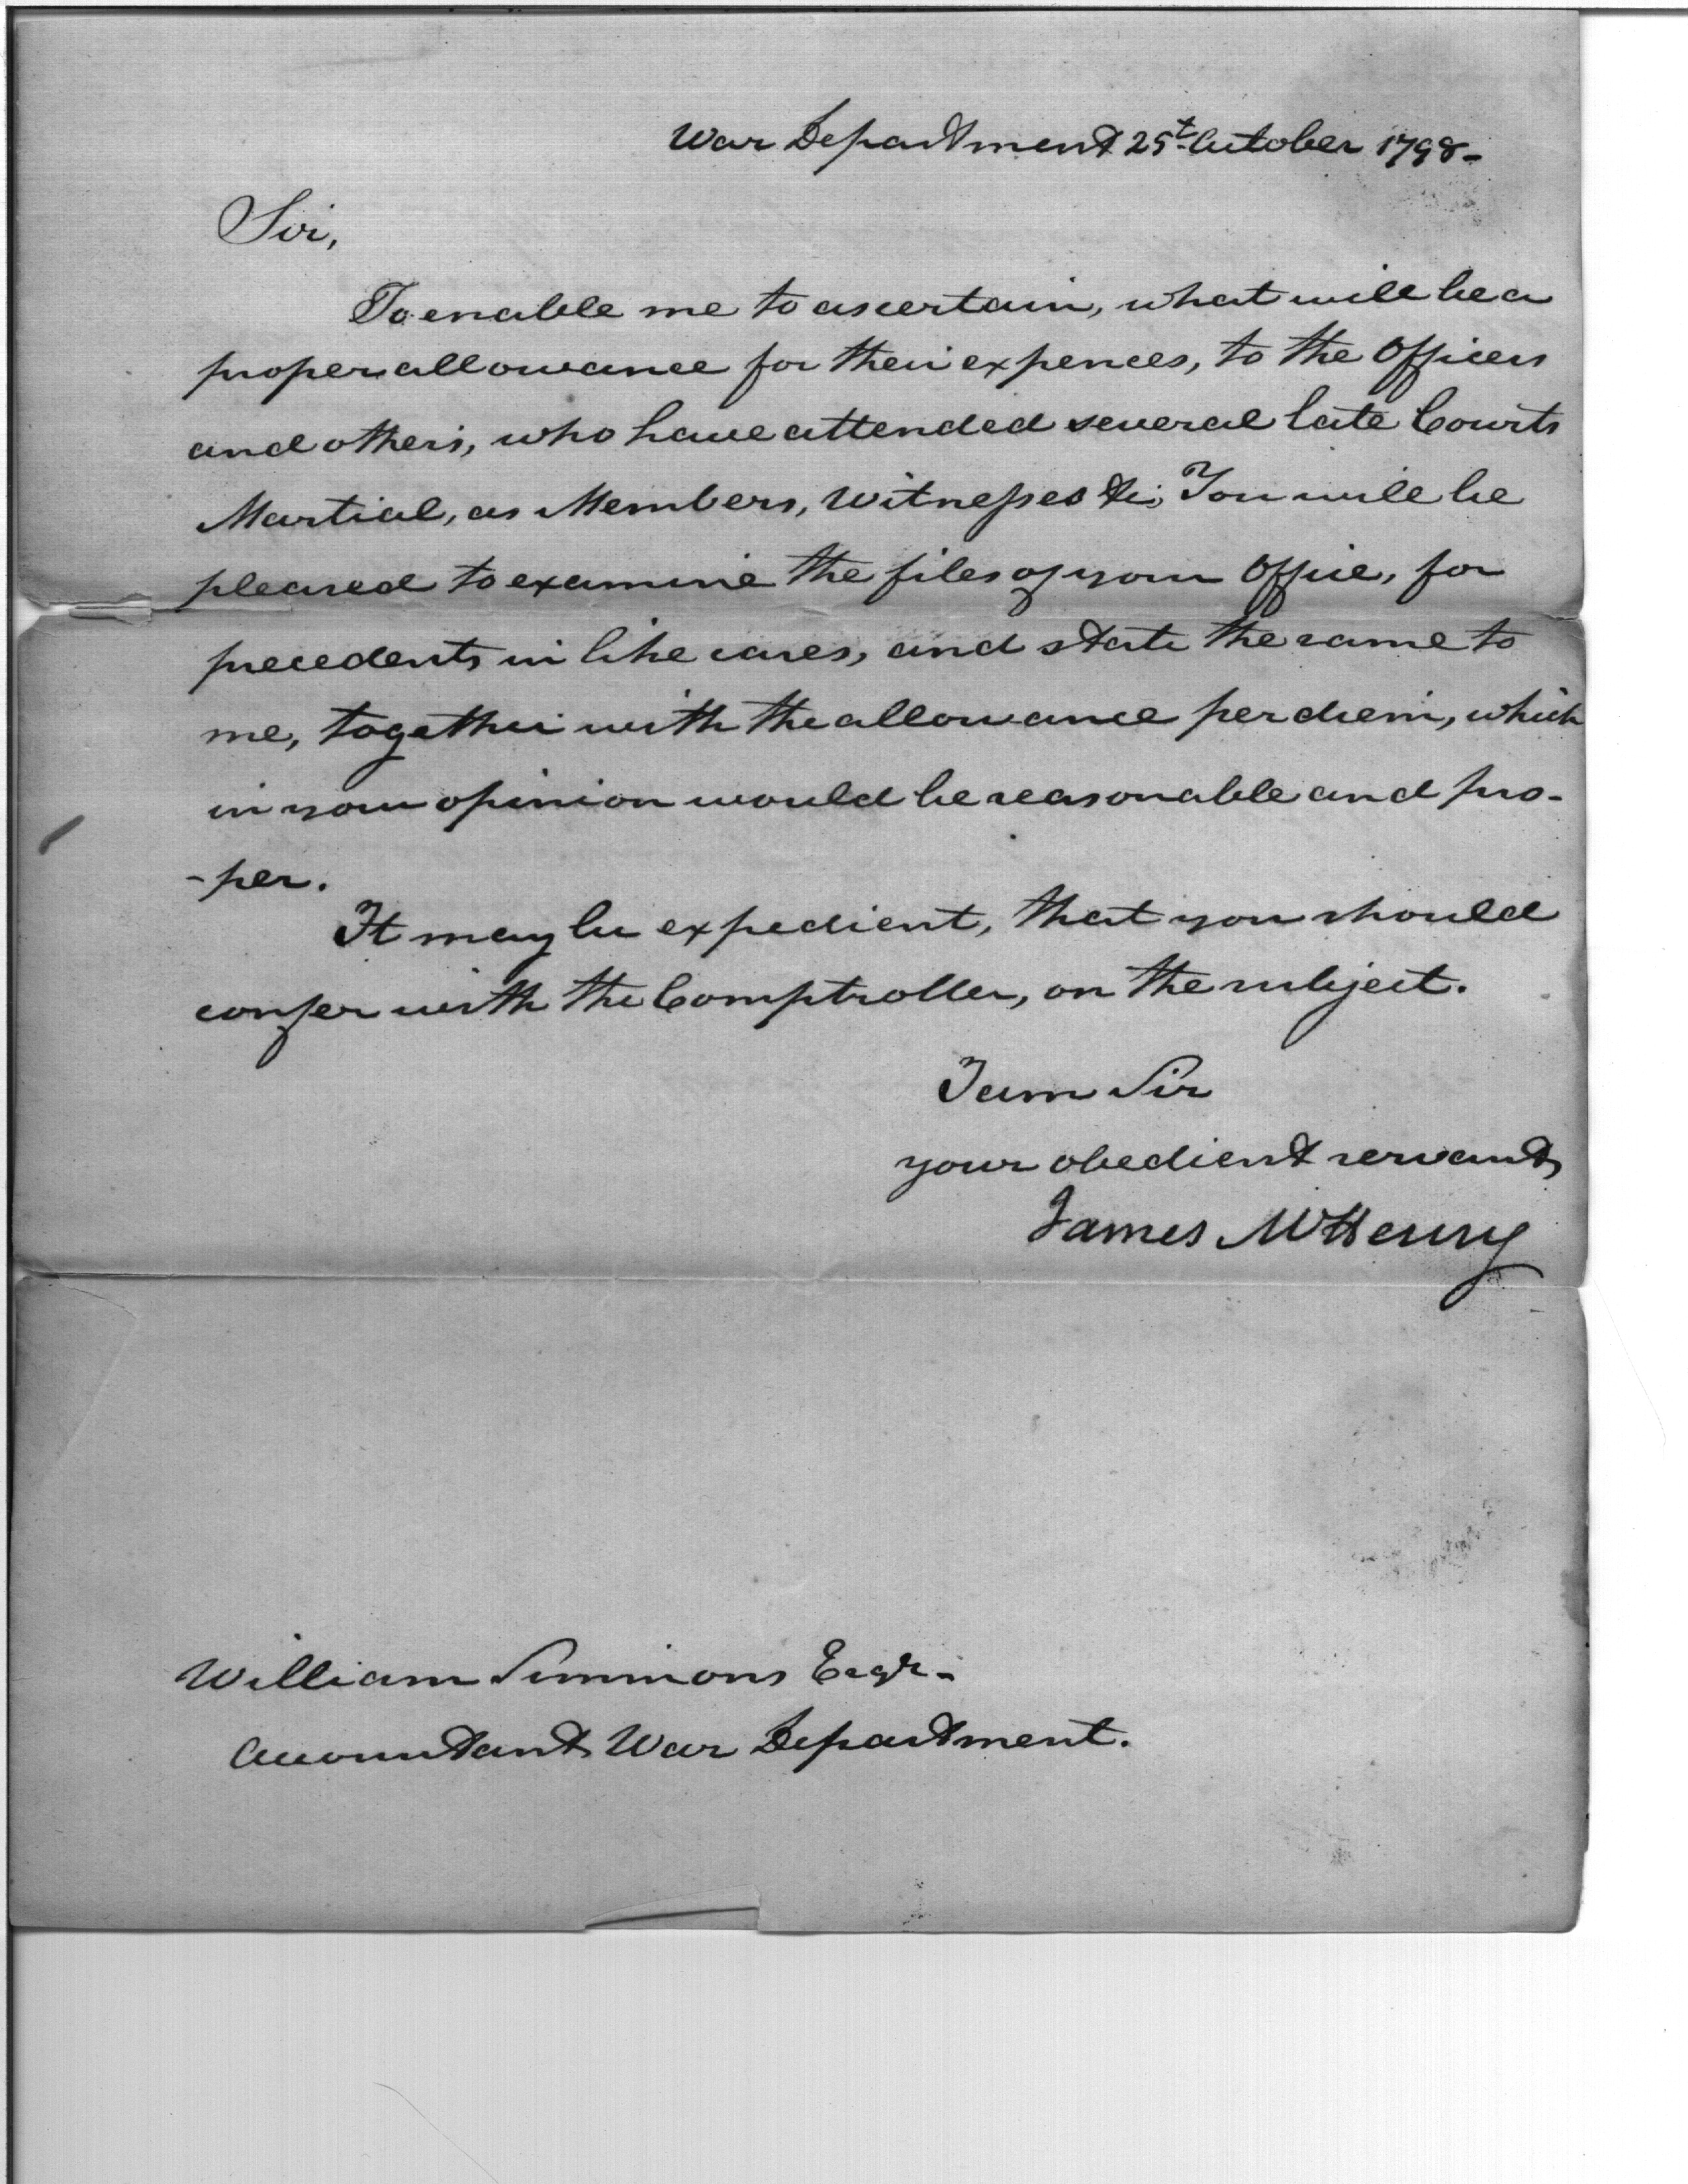 War Department 25t October 1798-
Sir,
To enable me to ascertain, what will be a
proper allowance for their expences, to the Officers
and others, who have attended several late Courts
Martial, as Members, Witnesses &c; You will be
pleased to examine the files of your Office, for
precedents in like cases, and state the same to
me, together with the allowance per diem, which
in your opinion would be reasonable and pro-
-per.
It may be expedient, that you should
confer with the Comptroller, on the subject.
I am Sir
your obedient servant
James McHenry
William Simmons Esqr-
Accountant War Department.